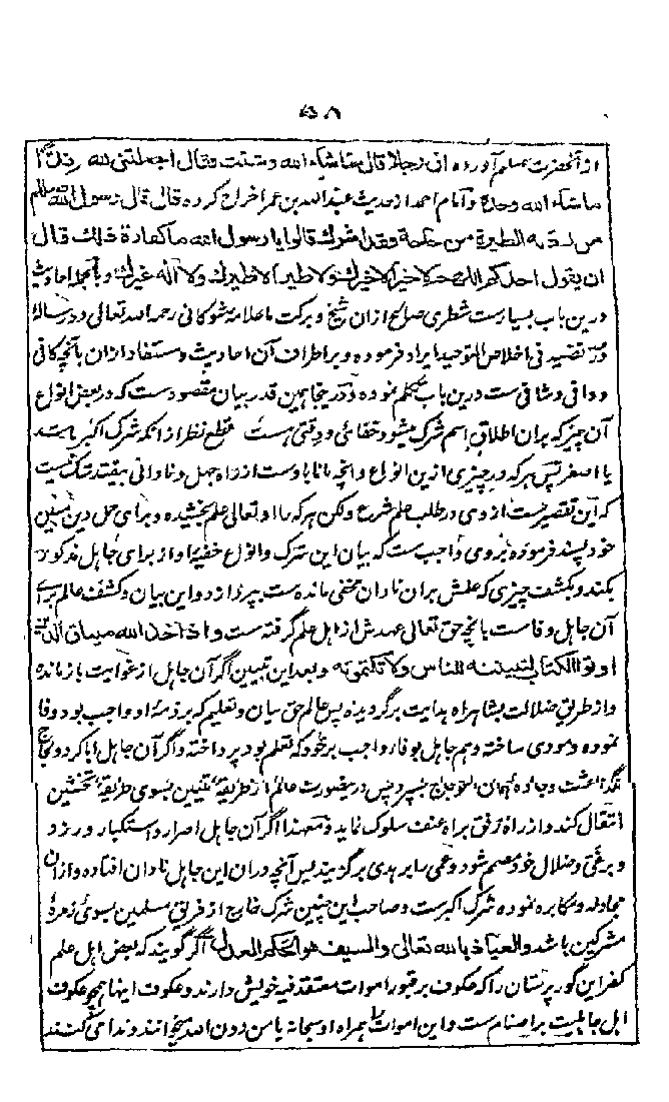 ۵۸
از آنحضرت صلعم آورده ان رجلا قال ما شاء الله وشئت فقال اجعلتنی لله ندا
ما شاء الله وحده و امام احمد از حدیث عبد الله بن عمر اخراج کرده قال قال رسول الله صلعم
من ردته الطیرة من حاجة فقد اشرك قالوا یا رسول الله ما کفارة ذلك قال
ان یقول احدکم اللهم لا خیر الا خیرك ولا طیر الا طیرك ولا اله غیرك و بالجمله احادیث
درین باب بسیارست شطری صالح ازان شیخ و برکت ما علامه شوکانی رحمه الله تعالی در رسالهٔ
در نضید فی اخلاص التوحید ایراد فرموده و بر اطراف آن احادیث و مستفاد ازان بآنچه کافی
و وافی و شافی ست درین باب تکلم نموده و درینجا همین قدر بیان مقصودست که در بعض انواع
آن چیز که بران اطلاق اسم شرک میشود خفائی و دقتی هست قطع نظر از آنکه شرک اکبر باشد
یا اصغر پس هر که در چیزی ازین انواع و آنچه مانا باوست از راه جهل و نادانی بیفتد شک نیست
که این تقصیرست از وی در طلب علم شرع ولکن هر که را او تعالی علم بخشیده و برای حمل دین مبین
خود پسند فرموده بروی واجب ست که بیان این شرک و انواع خفیهٔ او از برای جاهل مذکور
بکند و بکشف چیزی که علمش بران نادان مخفی مانده ست بپردازد و این بیان و کشف عالم برای
آن جاهل وفاست بآنچه حق تعالی عهدش از اهل علم گرفته ست و اذ اخذ الله میثاق الذین
اوتوا الکتاب لتبیننه للناس ولا تکتمونه و بعد این تبیین اگر آن جاهل از غوایت باز مانده
و از طریق ضلالت بشاهراه هدایت برگردیده پس عالم حق بیان و تعلیم که بر ذمهٔ او واجب بود وفا
نموده و مودی ساخته و هم جاهل بوفاء واجب بر خود که تعلم بود پرداخته و اگر آن جاهل ابا کرد و لجاج
نگذاشت و جادهٔ اعوجاج بسپرد پس درینصورت عالم از طریقهٔ تبیین بسوی طریقهٔ تخشین
انتقال کند و از راه رفق براه عنف سلوک نماید و معهذا اگر آن جاهل اصرار و استکبار ورزد
و بر غی و ضلال خود مصمم شود و عمی را بر هدی برگزیند پس آنچه دران این جاهل نادان افتاده و ازان
مجادله و مکابره نموده شرک اکبرست و صاحب این چنین شرک خارج از فریق مسلمین بسوی زمرهٔ
مشرکین باشد والعیاذ بالله تعالی والسیف هو الحکم العدل اگر گویند که بعض اهل علم
کفر این گور پرستان را که عکوف بر قبور اموات معتقد فیه خویش دارند و عکوف اینها همچو عکوف
اهل جاهلیت بر اصنام ست و این اموات را همراه او سبحانه یا من دون الله میخوانند و ندا می کنند